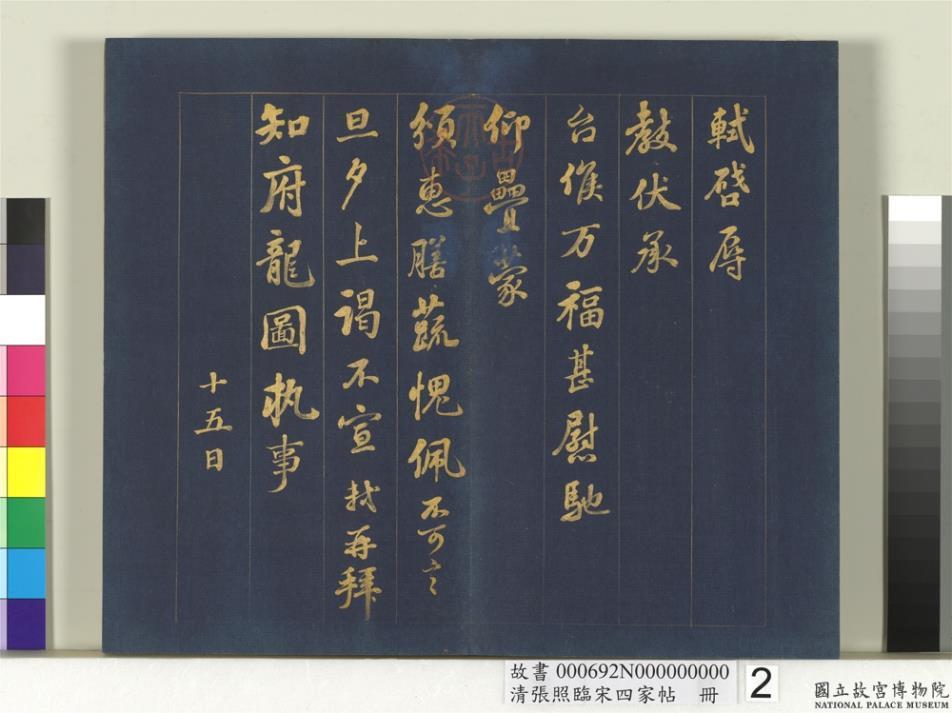 軾啓辱
教伏承
台候万福甚慰馳
仰疊蒙
頒惠膳蔬愧佩不可言
旦夕上謁不宣軾再拜
知府龍圖执事
十五日
故書 000692N000000000
清張照臨宋四家帖 冊
2
國立故宮博物院
NATIONAL PALACE MUSEUM